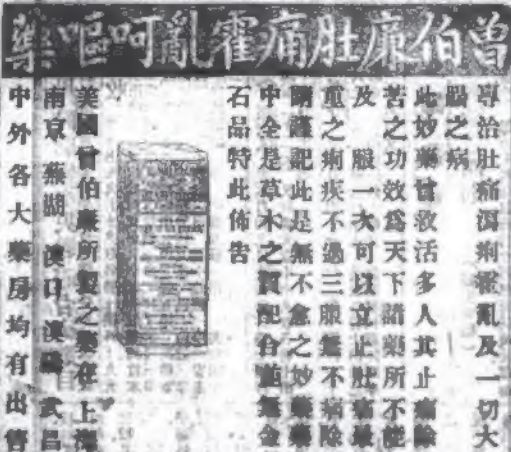 曾伯廉肚痛霍亂呵嘔藥
專治肚痛瀉痢霍亂及一切大
腸之病
此妙藥曾救活多人其止痛除
苦之功效爲天下諸藥所不能
及 服一次可以立止肚痛最
重之痢疾不過三服無不病除
謹記此是無不愈之妙藥藥
中全是草木之質配合並無金
石品特此佈告
美國曾伯廉所製之藥在上海
南京 蕪湖 漢口 漢陽 武昌
中外各大藥房均有出售